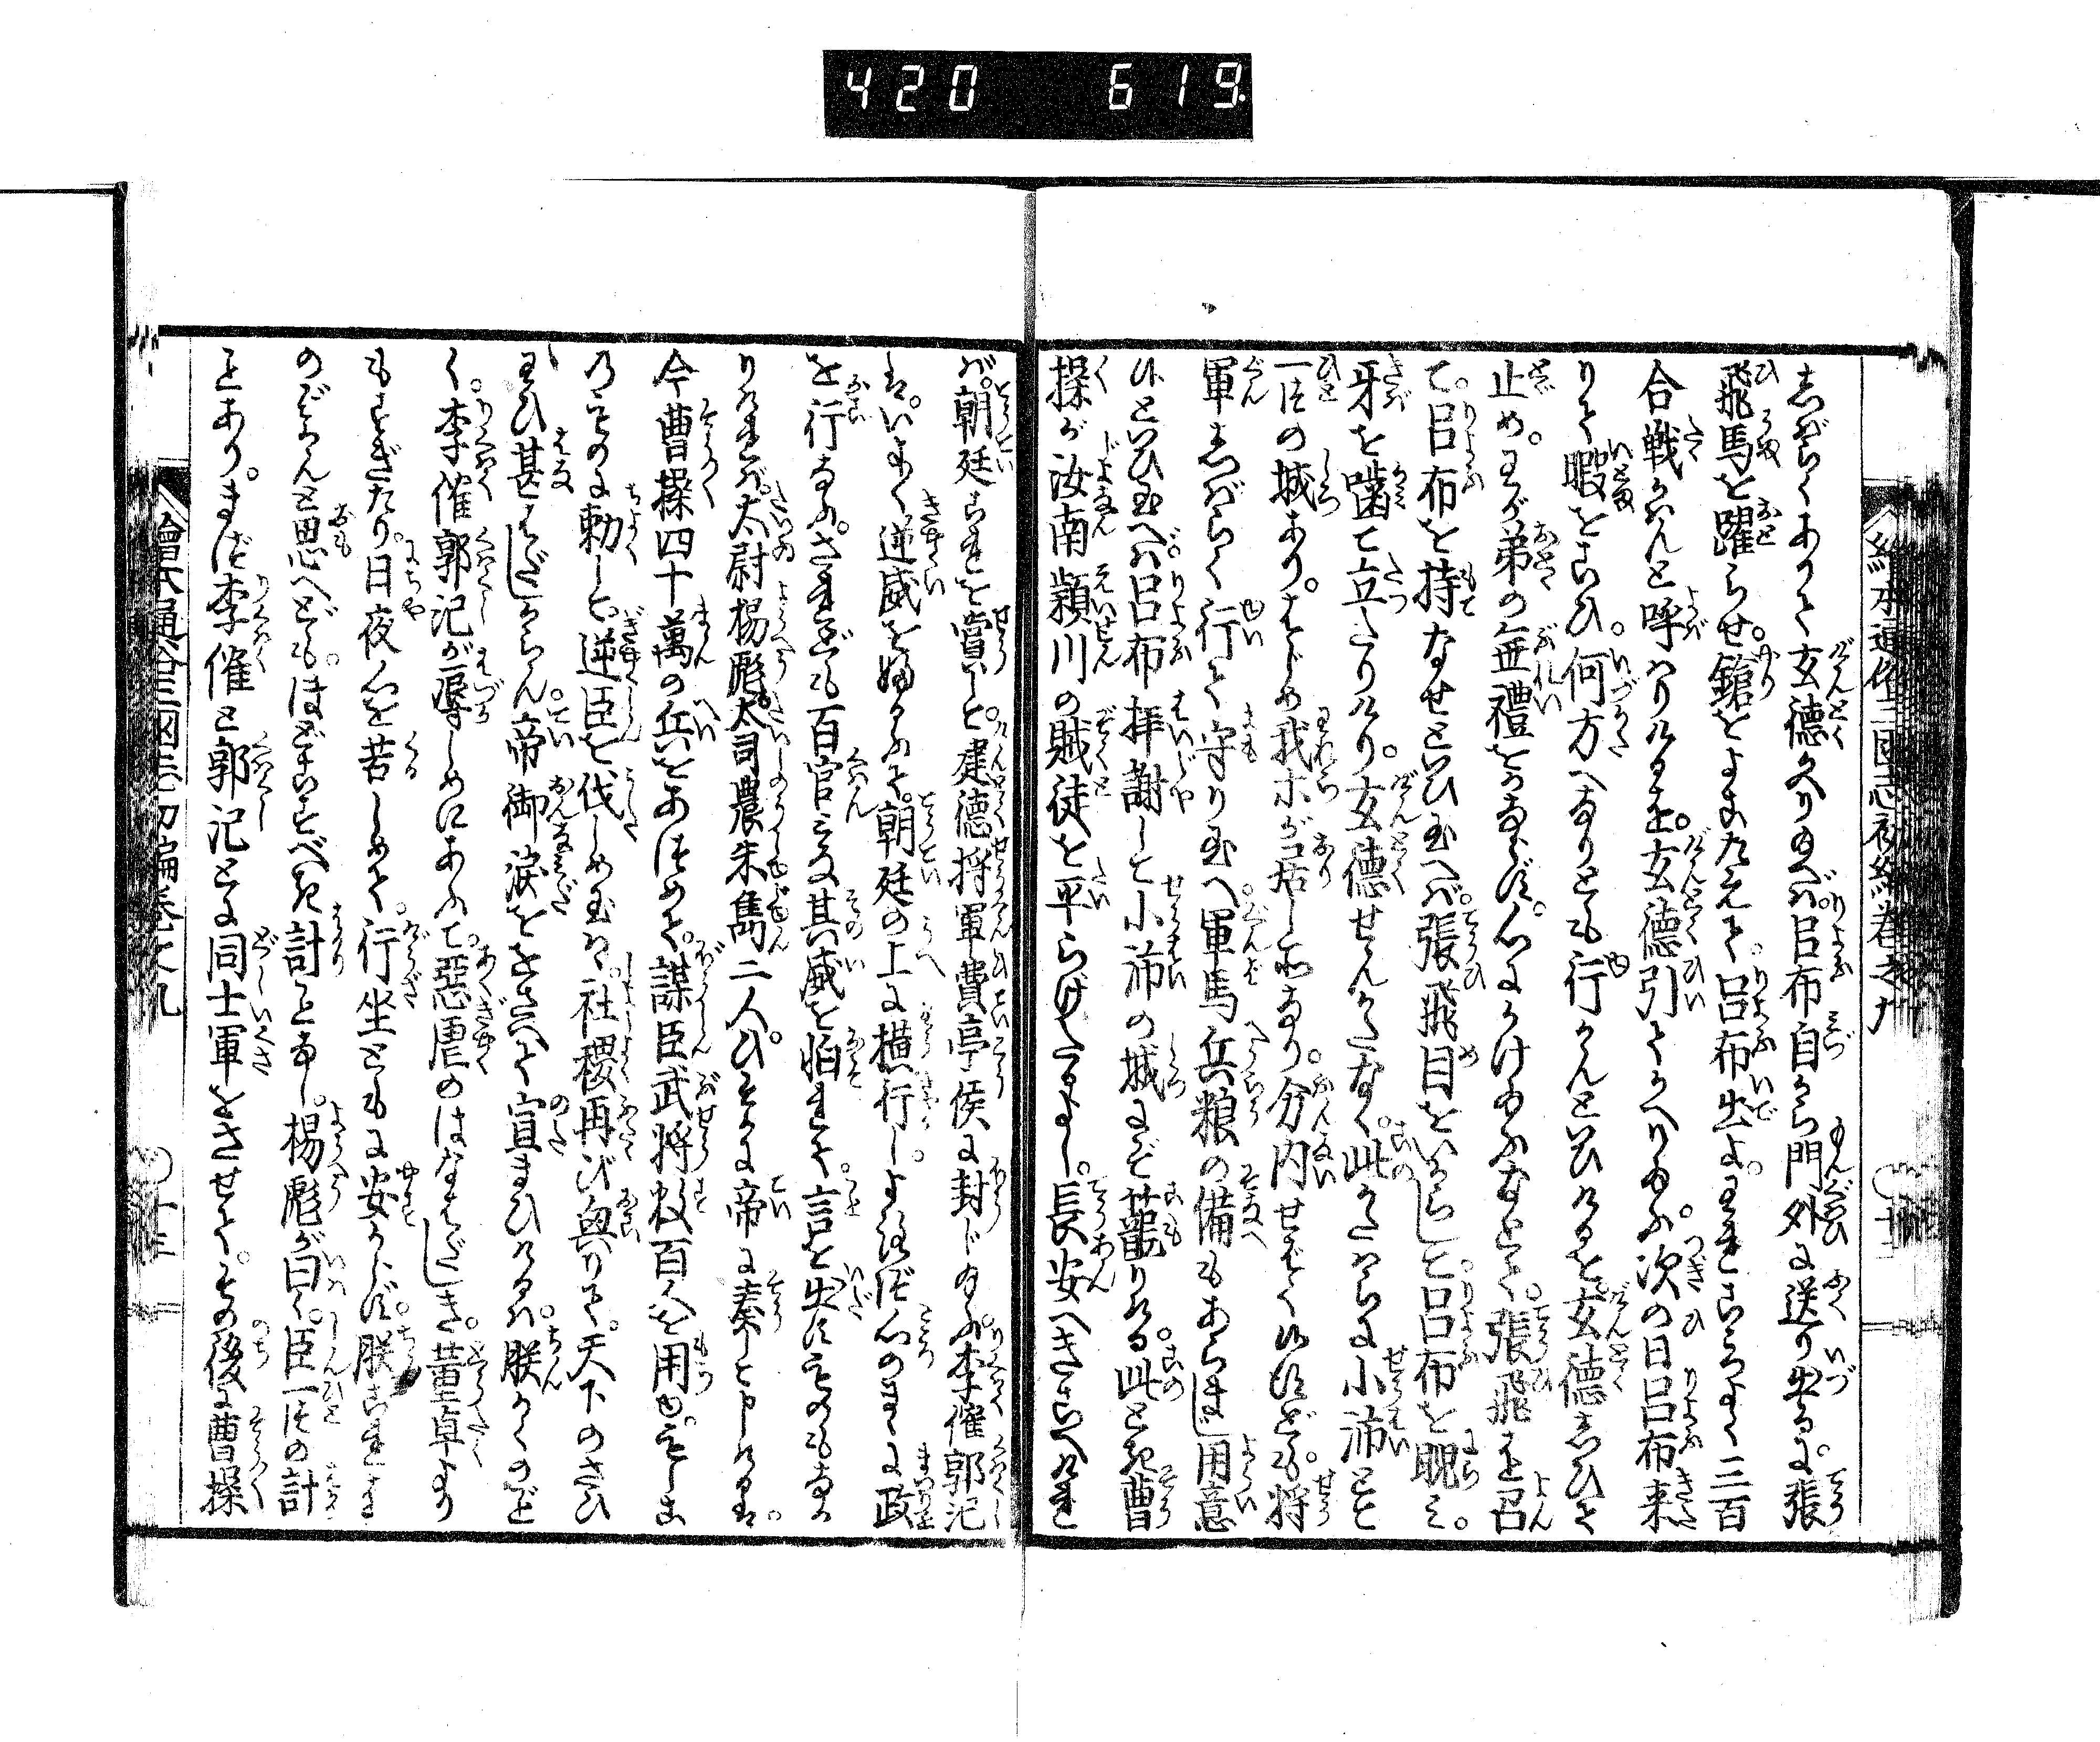 420 619
繪本通俗三國志初編卷之九
志ばらくありて玄德久りゐへば呂布自から門外に送り出るに張
飛馬を躍らせ鎗をよこたえて呂布出よわれきさまよく三百
合戦かはんと呼はりけるを玄德引てかへりゐふ次の日呂布来
りて暇をこひ何方へなりとも行かんといひけるを玄德志ひて
止めわが弟の無禮をかならず心にかけゐふなとて張飛を召
て呂布を持なせといひ玉へば張飛目をいからして呂布を睨み
牙を噛て立たりけり玄德せんかたなく此かたはらに小沛とて
一ツの城ありはじめ我ホが居し所なり分内せばく候はども将
軍志ばらく行て守り玉へ軍馬兵粮の備もあらまし用意
せんといひ玉へば呂布拝謝して小沛の城にぞ籠りける此とき曹
操が汝南潁川の賊徒を平らげたるよし長安へきこへければ
朝廷これを賞して建德将軍費亭侯に封じゐふ李傕郭汜
はいよく逆威を婦るふて朝廷の上に横行しよろづ心のまゝに政
を行なふされども百官みな其威を怕れて言を出すものもなか
りければ太尉楊彪太司農朱雋二人ひそかに帝に奏して申けるは
今曹操四十萬の兵をあつめて謀臣武将数百人を用ゆもしこ
のものに勅して逆臣を伐しめ玉はゞ社稷再び興りて天下のさひ
わひ甚はだしからん帝御淚をおさへて宣まひけるは朕かくのごと
く李傕郭汜が辱しめにあふて惡虐のはなはだしき董卓より
もすぎたり日夜心を苦しめて行坐ともに安からず朕これを
のぞかんと思へどもほどこすべき計ことなし楊彪が曰く臣一ツの計
ことありまづ李傕と郭汜とに同士軍をさせてその後に曹操
繪本通俗三國志初編卷之九 十三